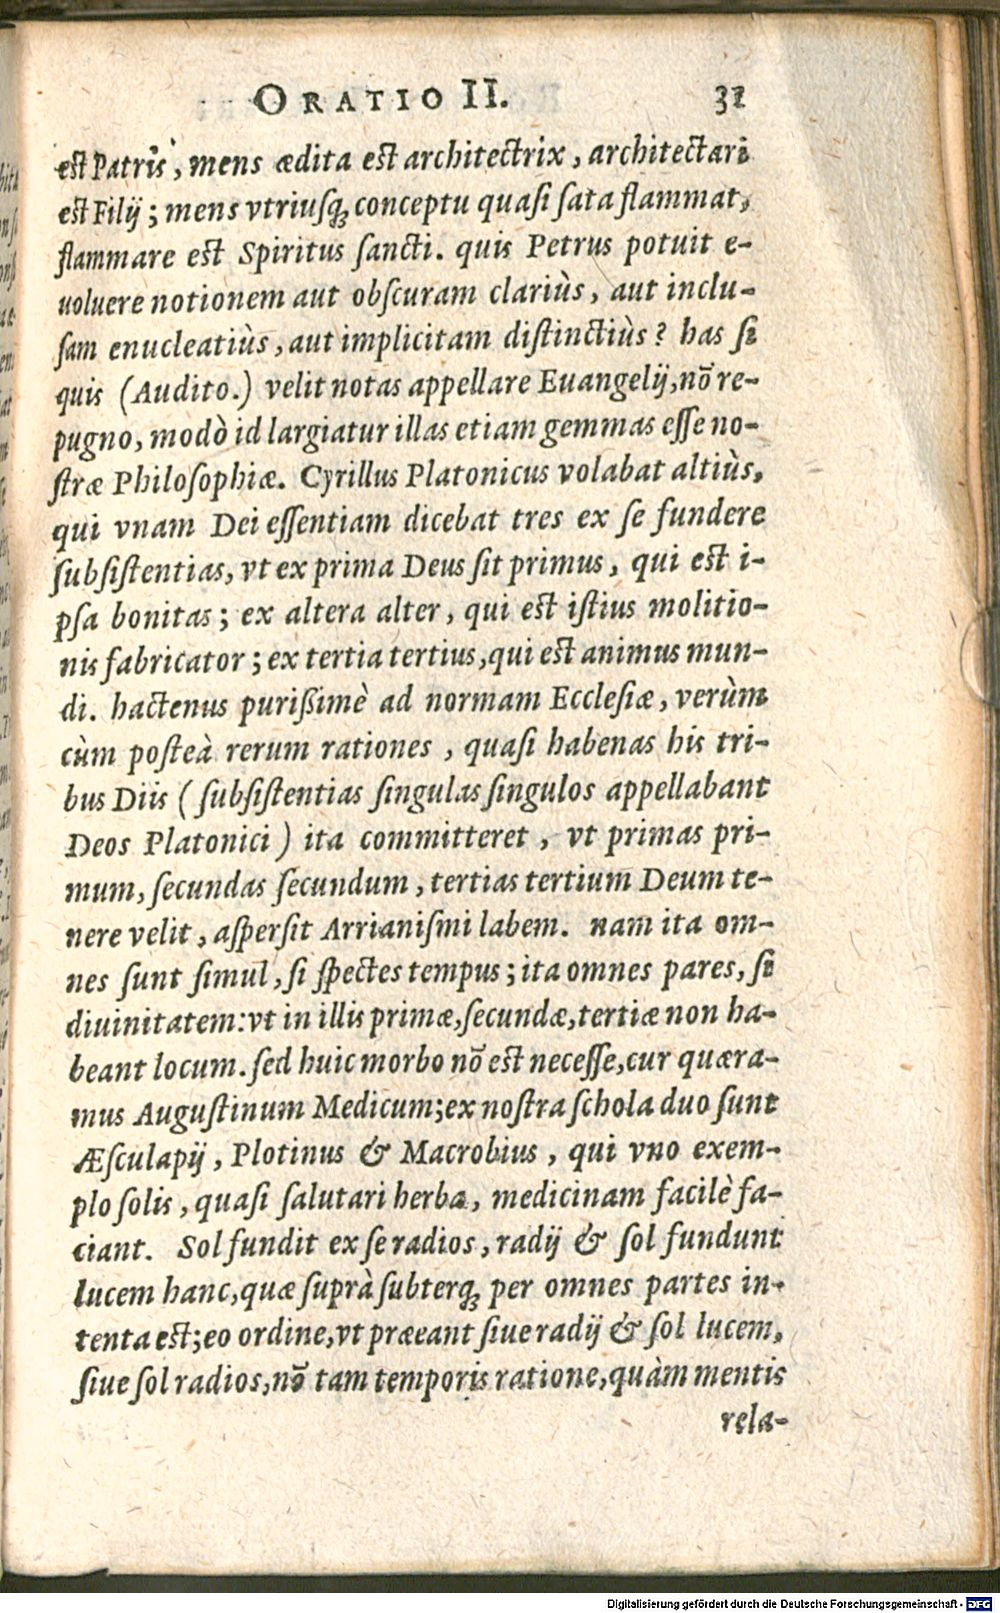 ORATIO II. 31
est Patris, mens ædita est architectrix, architectari
est Filij; mens vtriusq; conceptu quasi sata flammat,
flammare est Spiritus sancti. quis Petrus potuit e-
uoluere notionem aut obscuram clariùs, aut inclu-
sam enucleatiùs, aut implicitam distinctiùs? has si
quis (Audito.) velit notas appellare Euangelij, nō re-
pugno, modò id largiatur illas etiam gemmas esse no-
stræ Philosophiæ. Cyrillus Platonicus volabat altiùs,
qui vnam Dei essentiam dicebat tres ex se fundere
subsistentias, vt ex prima Deus sit primus, qui est i-
psa bonitas; ex altera alter, qui est istius molitio-
nis fabricator; ex tertia tertius, qui est animus mun-
di. hactenus purißimè ad normam Ecclesiæ, verùm
cùm posteà rerum rationes, quasi habenas his tri-
bus Diis (subsistentias singulas singulos appellabant
Deos Platonici) ita committeret, vt primas pri-
mum, secundas secundum, tertias tertium Deum te-
nere velit, aspersit Arrianismi labem. nam ita om-
nes sunt simul, si spectes tempus; ita omnes pares, si
diuinitatem: vt in illis primæ, secundæ, tertiæ non ha-
beant locum. sed huic morbo nō est necesse, cur quæra-
mus Augustinum Medicum; ex nostra schola duo sunt
Æsculapij, Plotinus & Macrobius, qui vno exem-
plo solis, quasi salutari herba, medicinam facilè fa-
ciant. Sol fundit ex se radios, radij & sol fundunt
lucem hanc, quæ suprà subterq; per omnes partes in-
tenta est; eo ordine, vt præeant siue radij & sol lucem,
siue sol radios, nō tam temporis ratione, quàm mentis
rela-
Digitalisierung gefördert durch die Deutsche Forschungsgemeinschaft - DFG